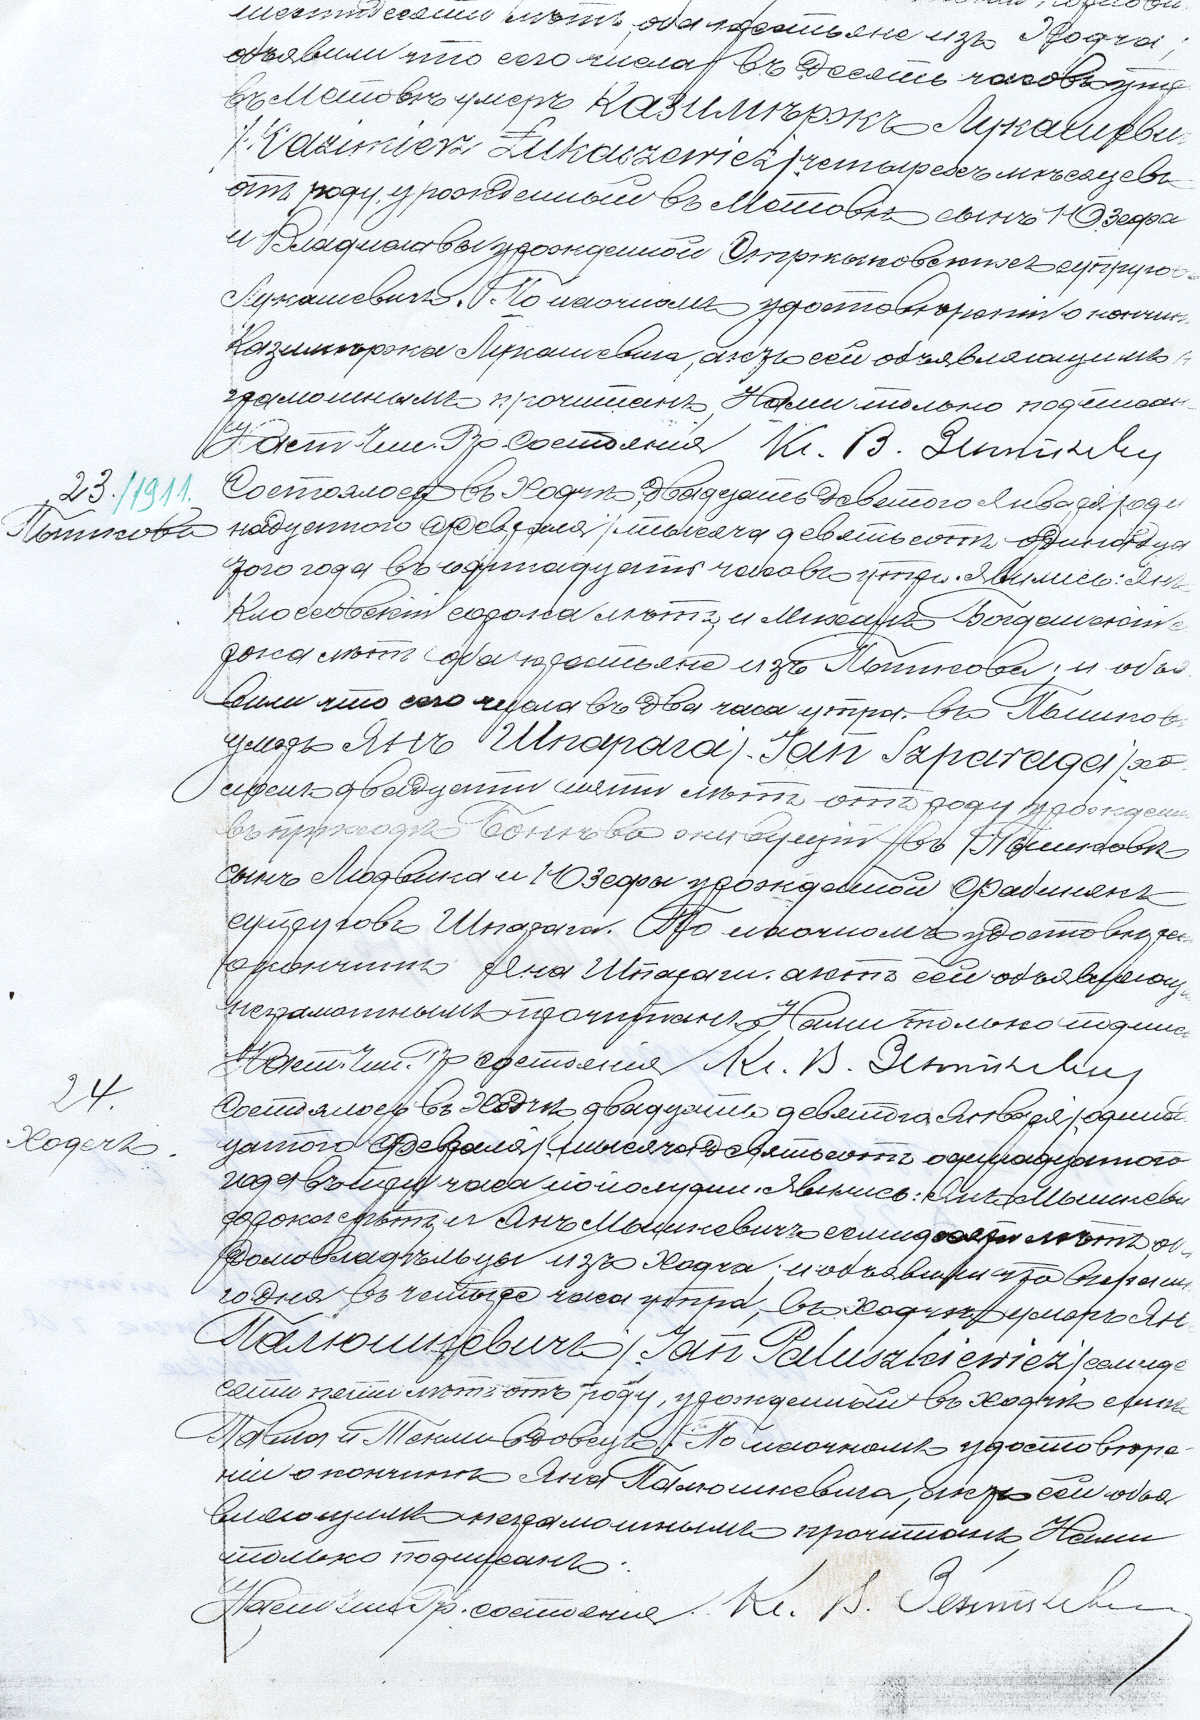 лѣтъ, оба крестьяне изъ Ходча;
объявили что сего числа въ десять часовъ утра
въ Метовкѣ умеръ Казимѣржъ Лукашеви
/. Kazimierz Łukaszewicz / четырехъ мѣсяцевъ
отъ роду, урожденный въ Метовкѣ сынъ Юзефа
и Владиславы урожденной супруговъ
Лукашевичъ. По наочномъ удостовѣреніи о кончинѣ
Казимѣржа Лукашевича, актъ сей объявляющимъ
грамотнымъ прочитанъ, Нами только подписан
Наст. Чин. Гр. состоянія Кс. В.
23./1911. Состоялось въ Ходчѣ, двадцать девятого Января / оди
надцатого Февраля / тысяча девятьсотъ одинадца
того года въ одинадцать часовъ утра. Явились: Янъ
Клоссовскій сорока лѣтъ, и Михалъ со
рока лѣтъ оба крестьяне изъ ; и объя
вили что сего числа въ два часа утра въ
умеръ Янъ Шпарага /. Jan Szparaga / хо
лостъ двадцати пяти лѣтъ отъ роду урожден
въ приходѣ живущій въ
сынъ Людвика и Юзефы урожденной Фабинякъ
супруговъ Шпарага. По наочномъ удостовѣре
о кончинѣ Яна Шпараги. актъ сей объявляющ
неграмотнымъ прочитанъ, Нами только подпис
Наст. Чин. Гр. состоянія Кс. В.
24. Состоялось въ Ходчѣ, двадцать девятого Января / одинад
Ходечъ. цатого Февраля / тысяча девятьсотъ одинадцатого
года въ три часа пополудни. Явились: Янъ
сорока лѣтъ, и Янъ семидесяти лѣтъ об
домовладѣльцы изъ Ходча; и объявили что
го дня въ четыре часа утра, въ Ходчѣ умеръ Ян
Палюшкевичъ /. Jan Paluszkiewicz / семиде
сяти пяти лѣтъ отъ роду, урожденный въ Ходчѣ сынъ
Павла и Теклы вдовецъ. По наочномъ удостовѣре-
ніи о кончинѣ Яна Палюшкевича, актъ сей объя
вляющимъ неграмотнымъ прочитанъ, Нами
только подписанъ.
Наст. Чин. Гр. состоянія Кс. В.